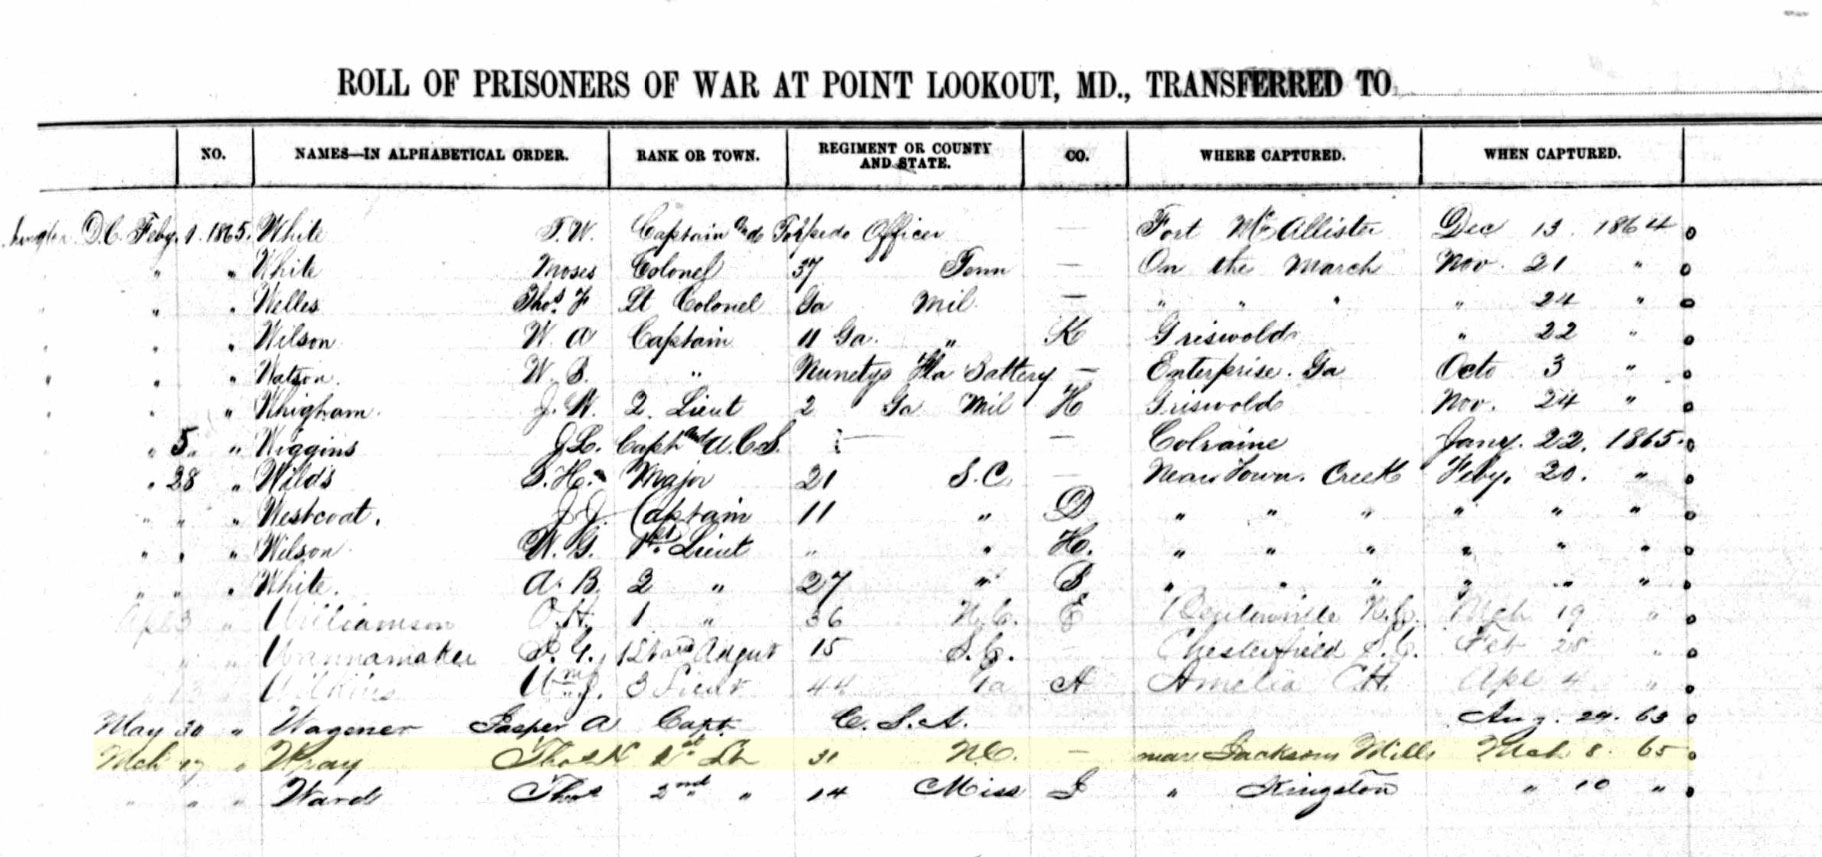 ROLL OF PRISONERS OF WAR AT POINT LOOKOUT, MD., TRANSFERRED TO
NO. NAMES—IN ALPHABETICAL ORDER. RANK OR TOWN. REGIMENT OR COUNTY AND STATE. CO. WHERE CAPTURED. WHEN CAPTURED.
D.C. Feby. 1. 1865. White T. W. Captain and Torpedo Officer — Fort McAllister Dec 13. 1864
" " White Moses Colonel 37 Tenn — On the March Nov. 21 "
" " Welles Thos. F Lt Colonel Ga Mil — " " " " 24 "
" " Wilson W. A Captain 11 Ga. " K Griswold " 22 "
" " Watson. W. B. " Fla Battery — Enterprise. Ga Octo 3 "
" " Whigham. J. W. 2. Lieut 2 Ga Mil H Griswold Nov. 24 "
" 5. " Wiggins J. L. Capt and A.C.S. — — Colraine Jany. 22. 1865.
" 28 " Wilds S. H. Major 21 S.C — Near Town. Creek Feby. 20. "
" " " Westcoat. J. J. Captain 11 " D " " " " " "
" " " Wilson. W. G. 1st Lieut " " H. " " " " " "
" " " White. A. B. 2 " 27 " B " " " " " "
Apl 3 " Williamson O. H. 1 " 36 N.C. E Bentonville N.C. Mch 19 "
" " Wannamaker 15 S.C. — Chesterfield S.C. Feb 28 "
13 " Wilkins Wm J. 3 Lieut 44 A Amelia C.H. Apl 4 "
May 30 " Wagener Gasper A Capt. C. S. A. Aug. 24. 63
Mch 17 " Wray Thos 31 NC. — near Jacksons Mills Mch 8. 65
" " " Ward Thos 2nd " 14 Miss " Kingston " 10 "